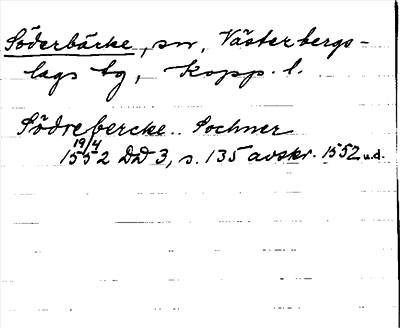 Söderbärke, sn, Västerbergs-
lags tg, Kopp. l.
Södrebercke.. Sochner
19/4 1552 DD 3, s. 135 avskr. 1552 u.d.